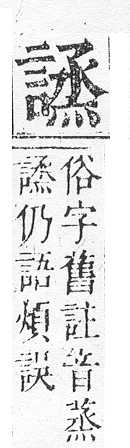 䜼
俗字舊註音蒸
䜼仍語煩誤